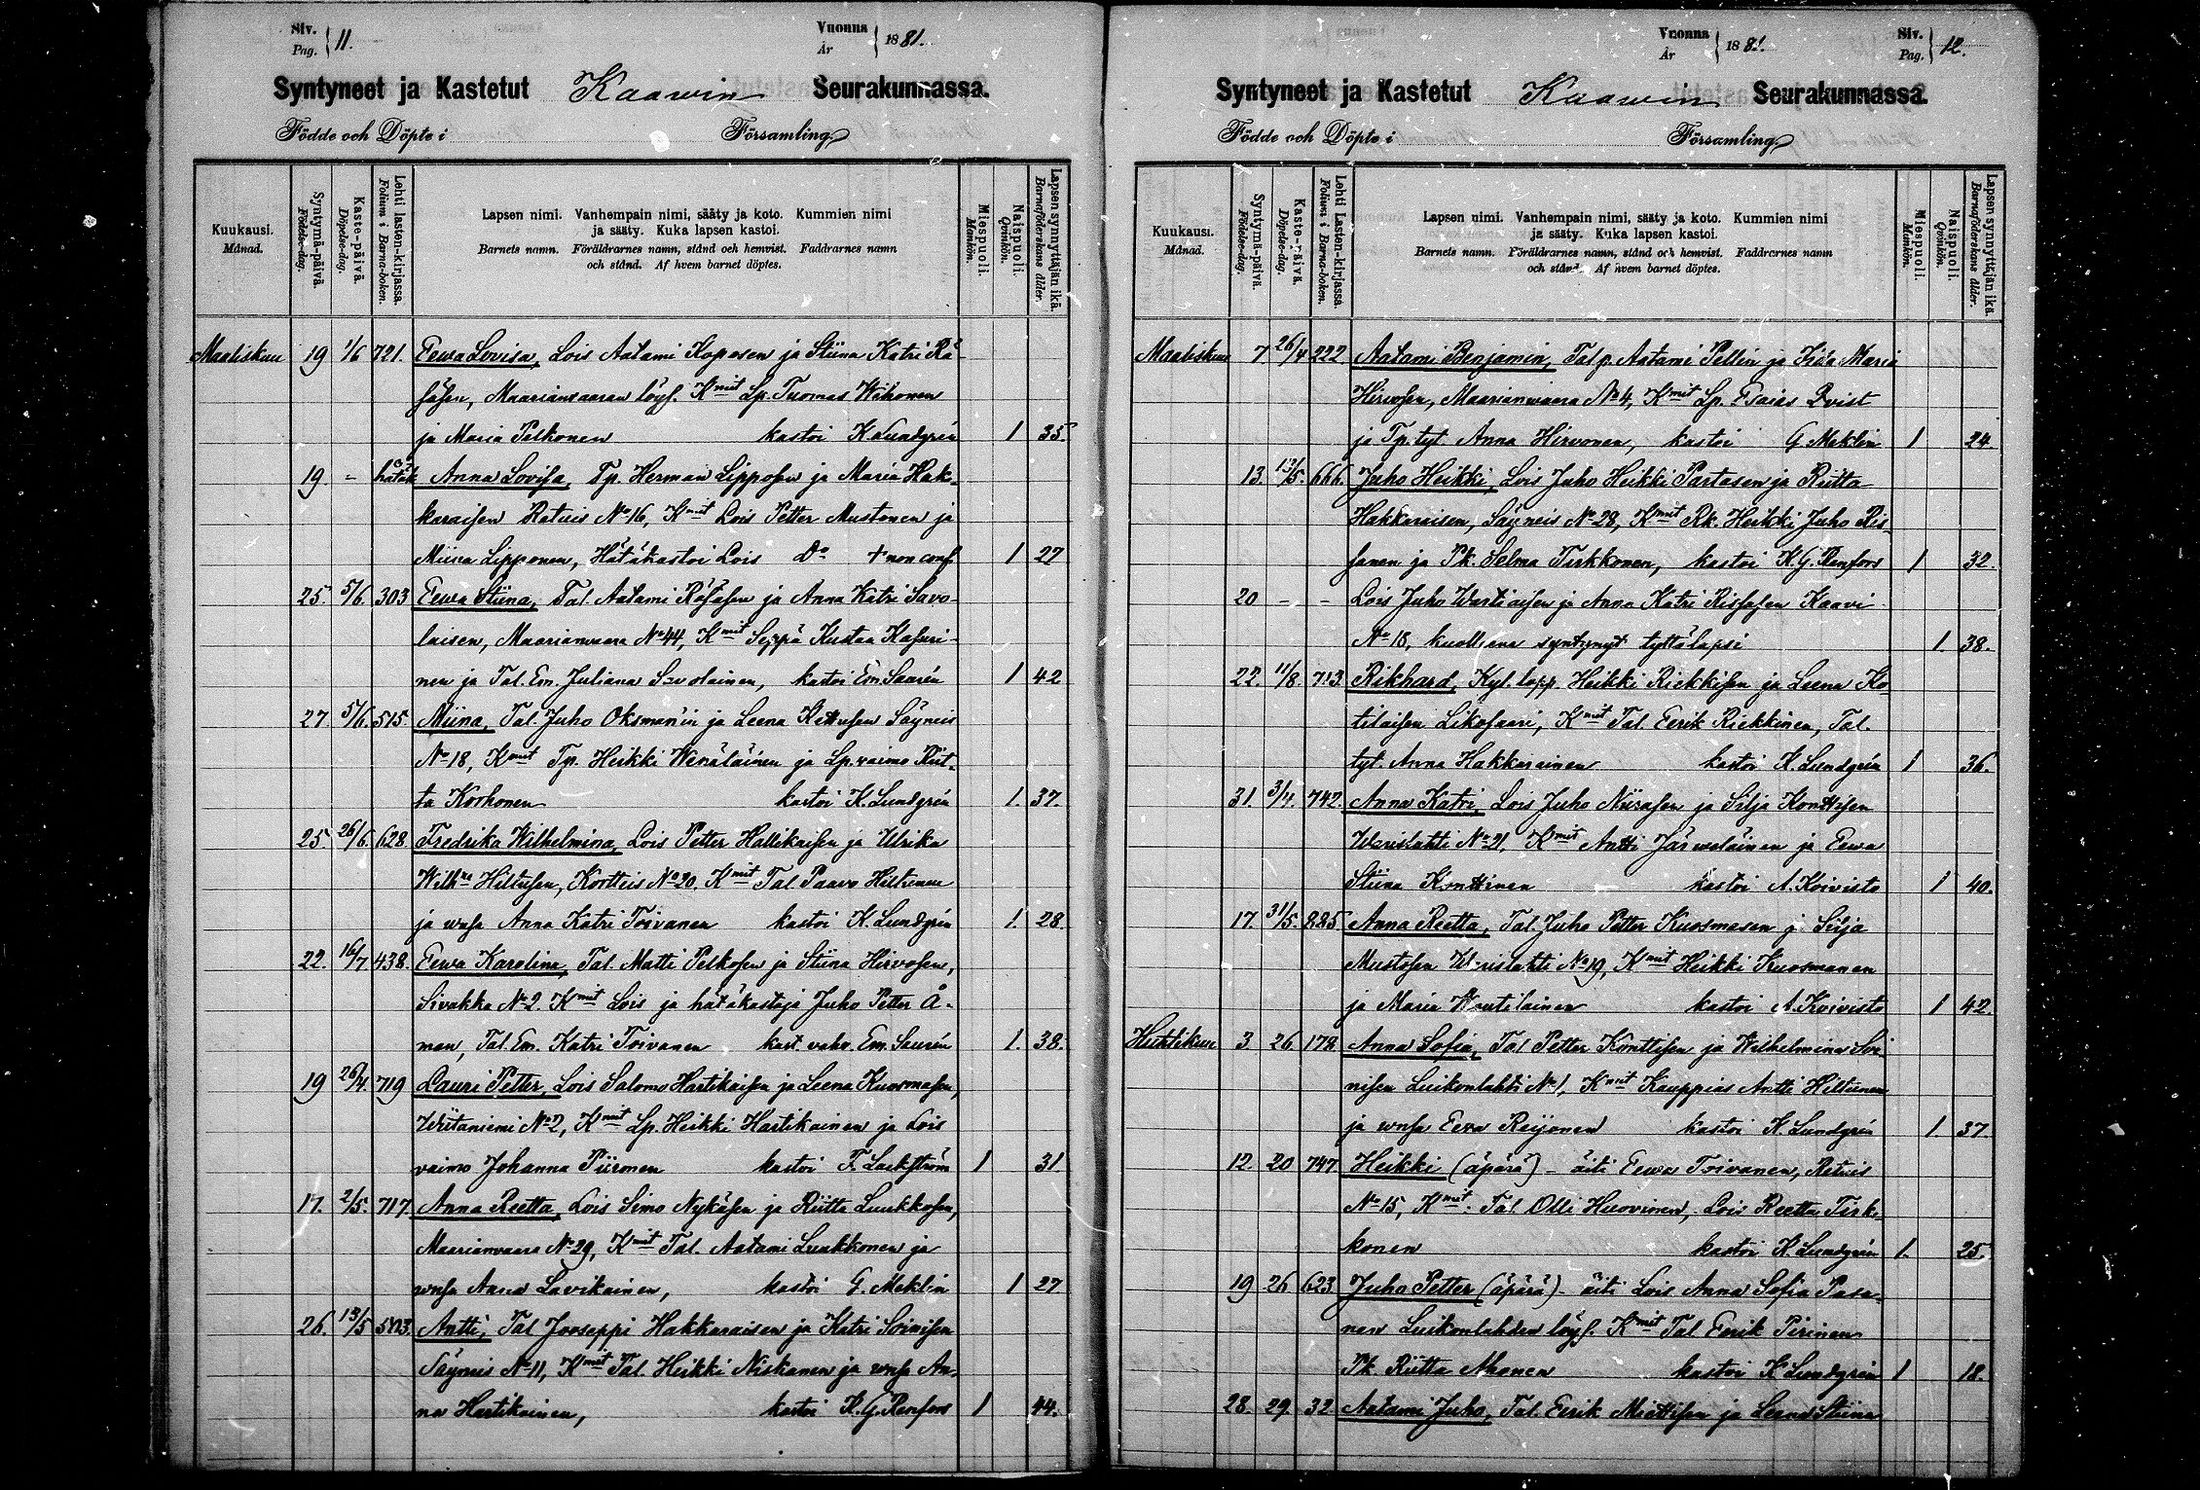 Siv. Pag. 11. Vuonna År 1881.
Syntyneet ja Kastetut Kaawin Seurakunnassa.
Födde och Döpte i Församling
Kuukausi. Månad.
Syntymä-päivä. Födelse-dag.
Kaste-päivä. Döpelse-dag.
Lehti lasten-kirjassa. Folium i Barna-boken.
Lapsen nimi. Vanhempain nimi, sääty ja koto. Kummien nimi
ja sääty. Kuka lapsen kastoi.
Barnets namn. Föräldrarnes namn, stånd och hemvist. Faddrarnes namn
och stånd. Af hvem barnet döptes.
Miespuoli. Mankön.
Naispuoli. Qvinkön.
Lapsen synnyttäjän ikä. Barnaföderskans ålder.
Maaliskuu 19 1/6 721. Eewa Lovisa, Lois Aatami Koposen ja Stiina Katri Rä-
säsen, Maarianwaaran löys. Kmit Lp. Tuomas Wihonen
ja Maria Pelkonen kastoi K. Lundgrén 1 35.
19. - hätäk Anna Lovisa, Tp. Herman Lipposen ja Maria Hak-
karaisen Ratuis No 16, Kmit Lois Petter Mustonen ja
Miina Lipponen, Hätäkastoi Lois Do + non conf. 1 27
25. 5/6. 303 Eewa Stiina, Tal. Aatami Räsäsen ja Anna Katri Savo-
laisen, Maarianwaara No 44, Kmit Seppä Kustaa Kasuri-
nen ja Tal. Em. Juliana Savolainen, kastoi Em. Saurén 1 42
27 5/6. 515. Miina, Tal. Juho Oksman'in ja Leena Säyneis
No 18, Kmit Tp. Heikki Wenäläinen ja Lp. vaimo Riit-
ta Korhonen kastoi K. Lundgrén 1. 37.
25. 26/6. 628. Fredrika Wilhelmina, Lois Petter Hallikaisen ja Ulrika
Wilhna Hiltusen, Kortteis No 20, Kmit Tal. Paavo Hiltunen
ja wmsa Anna Katri Toivanen kastoi K. Lundgrén 1. 28.
22. 16/7 438. Eewa Karolina, Tal. Matti Pelkosen ja Stiina Hirvosen,
Sivakka No 2. Kmit Lois ja hätäkastaja Juho Petter Å-
man, Tal. Em. Katri Toivanen kast. vahv. Em. Saurén 1. 38.
19 26/4 719 Lauri Petter, Lois Salomo Hartikaisen ja Leena Kuosmasen,
Wiitaniemi No 2, Kmit Lp. Heikki Hartikainen ja Lois
vaimo Johanna Piironen kastoi F. Lackström 1 31
17. 2/5. 717. Anna Reetta, Lois Simo Nykäsen ja Riitta Luukkosen,
Maarianwaara No 29, Kmit Tal. Aatami Luukkonen ja
wmsa Anna Lavikainen, kastoi G. Meklin 1 27
26. 13/5 Antti, Tal Jooseppi Hakkaraisen ja Katri Soinisen
Säyneis No 11, Kmit Tal. Heikki Niskanen ja wmsa An-
na Hartikainen, kastoi K. G. Renfors 1 44.
Vuonna År 1881. Siv. Pag. 12.
Syntyneet ja Kastetut Kaawin Seurakunnassa.
Födde och Döpte i Församling
Kuukausi. Månad.
Syntymä-päivä. Födelse-dag.
Kaste-päivä. Döpelse-dag.
Lehti Lasten-kirjassa. Folium i Barna-boken.
Lapsen nimi. Vanhempain nimi, sääty ja koto. Kummien nimi
ja sääty. Kuka lapsen kastoi.
Barnets namn. Föräldrarnes namn, stånd och hemvist. Faddrarnes namn
och stånd. Af hvem barnet döptes.
Miespuoli. Mankön.
Naispuoli. Qvinkön.
Lapsen synnyttäjän ikä. Barnaföderskans ålder.
Maaliskuu 7 26/4 222. Aatami Benjamin, Tal p. Aatami Pellin ja Iida Maria
Hirvosen, Maarianwaara No 4, Kmit Lp. Esaias Qvist
ja Tp. tyt. Anna Hirvonen, kastoi G. Meklin 1 24.
13. 13/5. 666. Juho Heikki, Lois Juho Heikki Partasen ja Riitta
Hakkaraisen, Säyneis No 28, Kmit Rk. Heikki Juho Ris-
sanen ja Pk. Selma Tirkkonen, kastoi K. G. Renfors 1 32.
20 - - Lois Juho Wartiaisen ja Anna Katri Rissasen Kaavi
No 18, kuolleena syntynyt tyttölapsi 1. 38.
22. 11/8. 713. Rikhard, Kyl. lapp. Heikki Riekkisen ja Leena Ko
tilaisen Likosaari, Kmit Tal. Eerik Riekkinen, Tal.
tyt. Anna Hakkarainen kastoi K. Lundgrén 1 36.
31. 3/4. 742. Anna Katri, Lois Juho Niirasen ja Silja Konttisen
Warislahti No 21, Kmit Antti Järveläinen ja Eewa
Stiina Konttinen kastoi A. Koivisto 1 40.
17. 31/5. 885. Anna Reetta, Tal. Juho Petter Kuosmasen j. Silja
Mustosen Warislahti No 19, Kmit Heikki Kuosmanen
ja Maria Woutilainen kastoi A. Koivisto 1 42.
Huhtikuu 3. 26 178 Anna Sofia, Tal Petter Konttisen ja Wilhelmina Soi
nisen Luikonlahti No 1, Kmit Kauppias Antti Hiltunen
ja wmsa Eeva Reijonen kastoi K. Lundgrén 1. 37.
12. 20 747. Heikki (äpärä) - äiti Eewa Toivanen, Ratuis
No 15, Kmit. Tal. Olli Huovinen, Lois Reetta Tirk-
konen kastoi K. Lundgrén 1. 25.
19 26 623. Juho Petter (äpärä) - äiti Lois Anna Sofia Pasa-
nen Luikonlahden löys. Kmit Tal Eerik Pirinen
Pk. Riitta Ahonen kastoi K Lundgrén 1 18.
28. 29. 32. Aatami Juho, Tal. Eerik Miettisen ja Leena Stiina